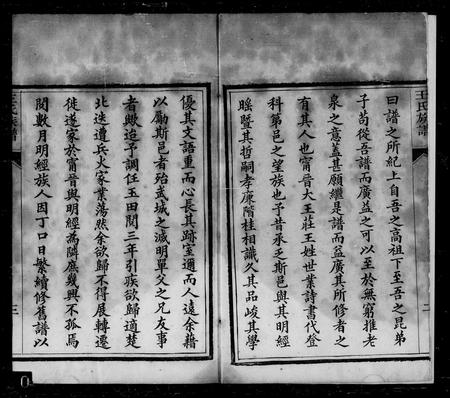 王氏族譜
曰譜之所紀上自吾之高祖下至吾之昆弟
子苟從吾譜而廣益之可以至於無窮推老
泉之意蓋甚願繼是譜而益廣其所修者之
有其人也甯昔大王莊王姓世業詩書代登
科第邑之望族也予昔承乏斯邑與其明經
暨其哲嗣孝廉階桂相識久其品峻其學
二
優其文語重而心長其跡室邇而人遠余藉
以勵斯邑者殆武城之滅明單父之兄友事
者歟迨予調任玉田閱三年引疾欲歸適楚
北迭遭兵火家業蕩然余欲歸不得展轉遷
徙遂家於甯晉與明經為隣庶幾興不孤焉
閱數月明經族人因丁口日繁續修舊譜以
三